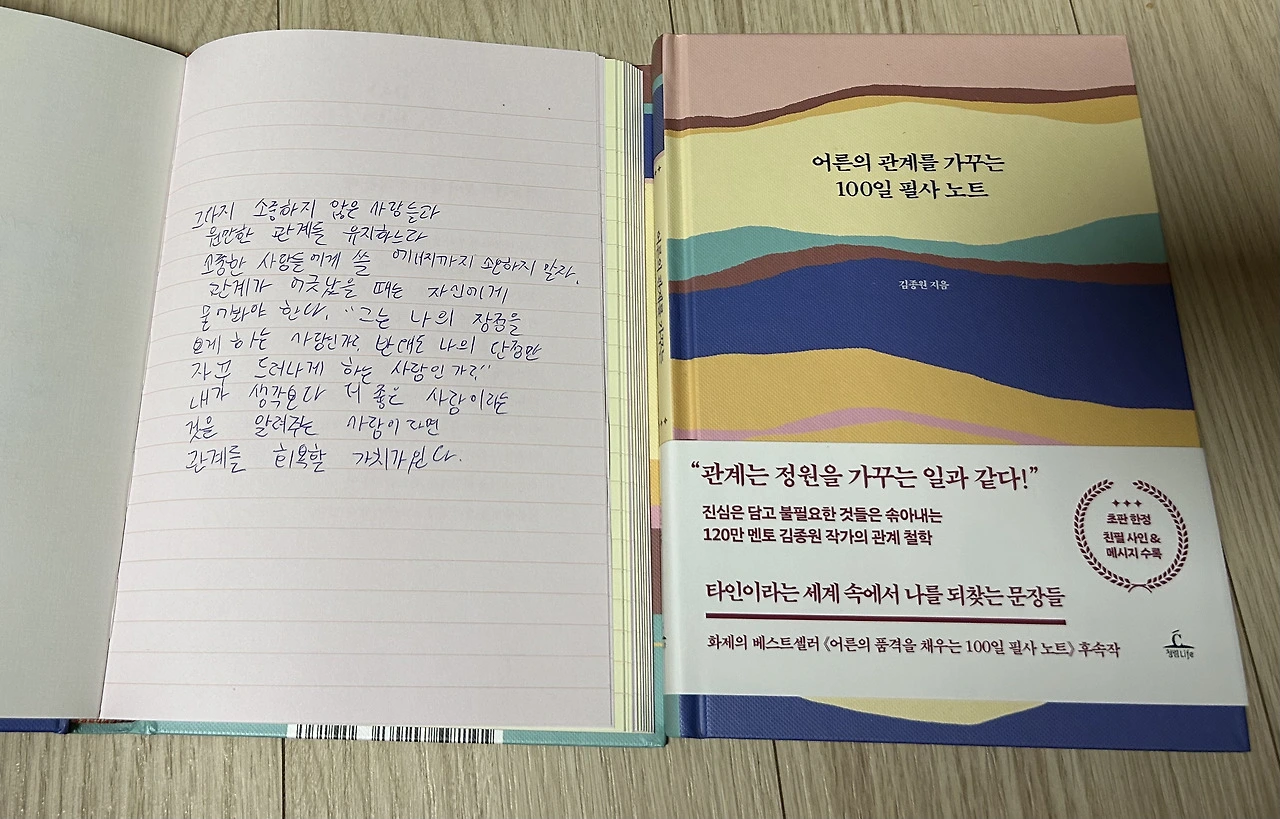 그다지 소중하지 않은 사람들과
원만한 관계를 유지하느라
소중한 사람들에게 쓸 에너지까지 소모하지 말자.
관계가 어긋났을 때는 자신에게
물어봐야 한다. "그는 나의 장점을
보게 하는 사람인가? 반대로 나의 단점만
자꾸 드러나게 하는 사람인가?"
내가 생각보다 더 좋은 사람이라는
것을 알려주는 사람이라면
관계를 회복할 가치가 있다.
어른의 관계를 가꾸는
100일 필사 노트
김종원 지음
"관계는 정원을 가꾸는 일과 같다!"
진심은 담고 불필요한 것들은 솎아내는
120만 멘토 김종원 작가의 관계 철학
초판 한정
친필 사인 &
메시지 수록
타인이라는 세계 속에서 나를 되찾는 문장들
화제의 베스트셀러 《어른의 품격을 채우는 100일 필사 노트》 후속작
청림Life